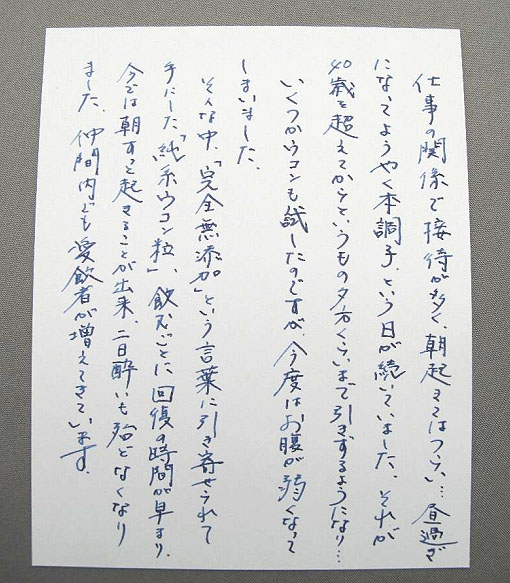 仕事の関係で接待が多く、朝起きてはつらい…昼過ぎ
になってようやく本調子、という日が続いていました。それが
40歳を超えてからというもの夕方くらいまで引きずるようになり…
いくつかウコンも試したのですが、今度はお腹が弱くなって
しまいました。
そんな中、「完全無添加」という言葉に引き寄せられて
手にした「純系ウコン粒」、飲むごとに回復の時間が早まり、
今では朝すっと起きることが出来、二日酔いも殆どなくなり
ました。仲間内でも愛飲者が増えてきています。